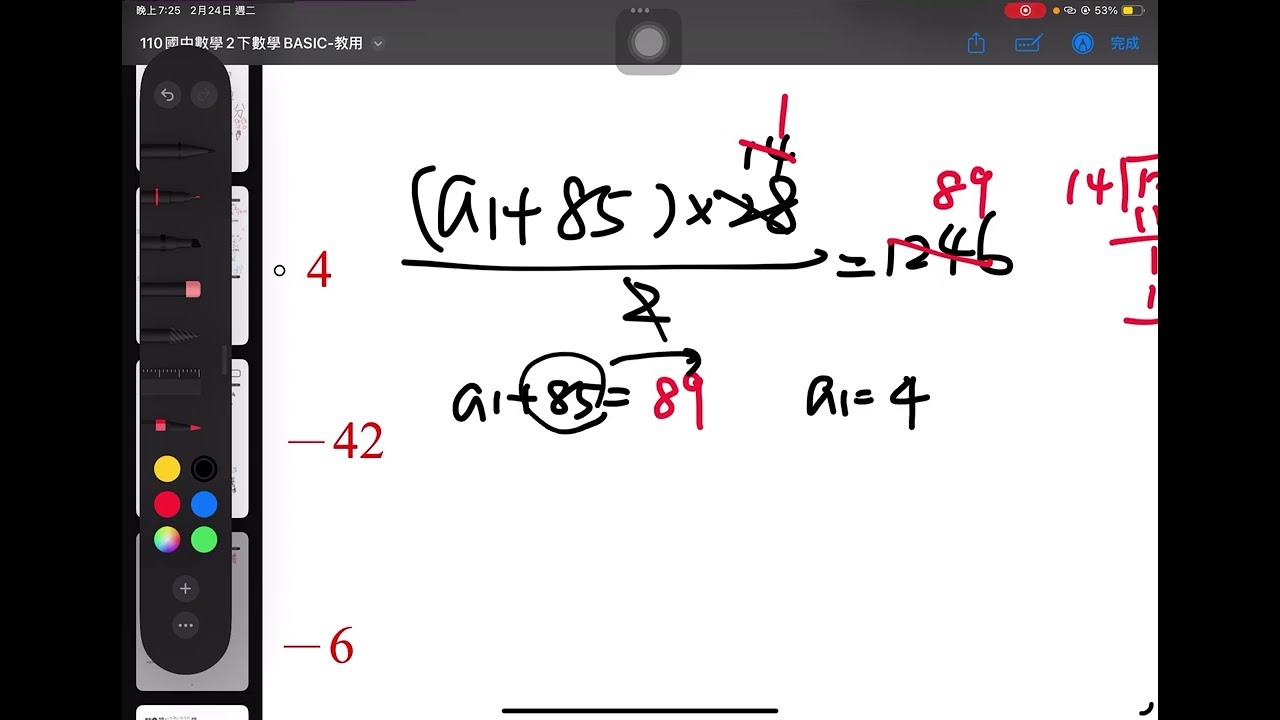 晚上7:25 2月24日 週二
53%
110國中數學2下數學BASIC-教用
完成
1
14
(a1+85)×28
2
=1246
89
14
4
a1+85=89
a1=4
—42
—6